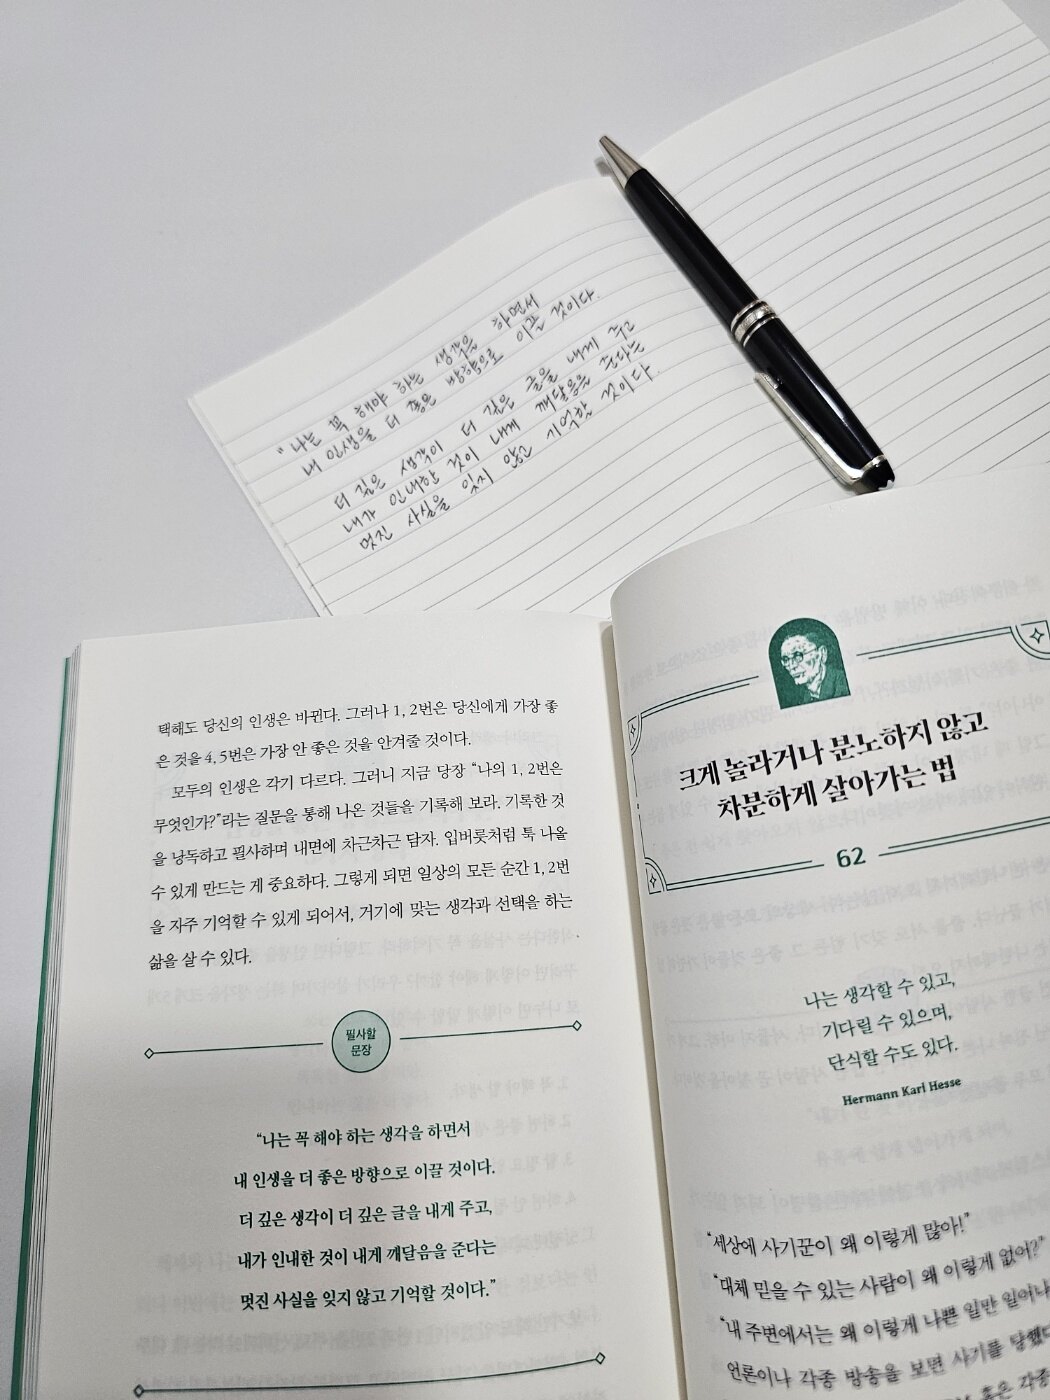 "나는 꼭 해야 하는 생각을 하면서
내 인생을 더 좋은 방향으로 이끌 것이다.
더 깊은 생각이 더 깊은 글을 내게 주고
내가 인내한 것이 내게 깨달음을 준다는
멋진 사실을 잊지 않고 기억할 것이다.
택해도 당신의 인생은 바뀐다. 그러나 1, 2번은 당신에게 가장 좋
은 것을 4, 5번은 가장 안 좋은 것을 안겨줄 것이다.
모두의 인생은 각기 다르다. 그러니 지금 당장 “나의 1, 2번은
무엇인가?”라는 질문을 통해 나온 것들을 기록해 보라. 기록한 것
을 낭독하고 필사하며 내면에 차근차근 담자. 입버릇처럼 툭 나올
수 있게 만드는 게 중요하다. 그렇게 되면 일상의 모든 순간 1, 2번
을 자주 기억할 수 있게 되어서, 거기에 맞는 생각과 선택을 하는
삶을 살 수 있다.
필사할
문장
“나는 꼭 해야 하는 생각을 하면서
내 인생을 더 좋은 방향으로 이끌 것이다.
더 깊은 생각이 더 깊은 글을 내게 주고,
내가 인내한 것이 내게 깨달음을 준다는
멋진 사실을 잊지 않고 기억할 것이다.”
크게 놀라거나 분노하지 않고
차분하게 살아가는 법
62
나는 생각할 수 있고,
기다릴 수 있으며,
단식할 수도 있다.
Hermann Karl Hesse
“세상에 사기꾼이 왜 이렇게 많아!”
“대체 믿을 수 있는 사람이 왜 이렇게 없어?”
“내 주변에서는 왜 이렇게 나쁜 일만 일어나
언론이나 각종 방송을 보면 사기를 당했다
혹은 각종